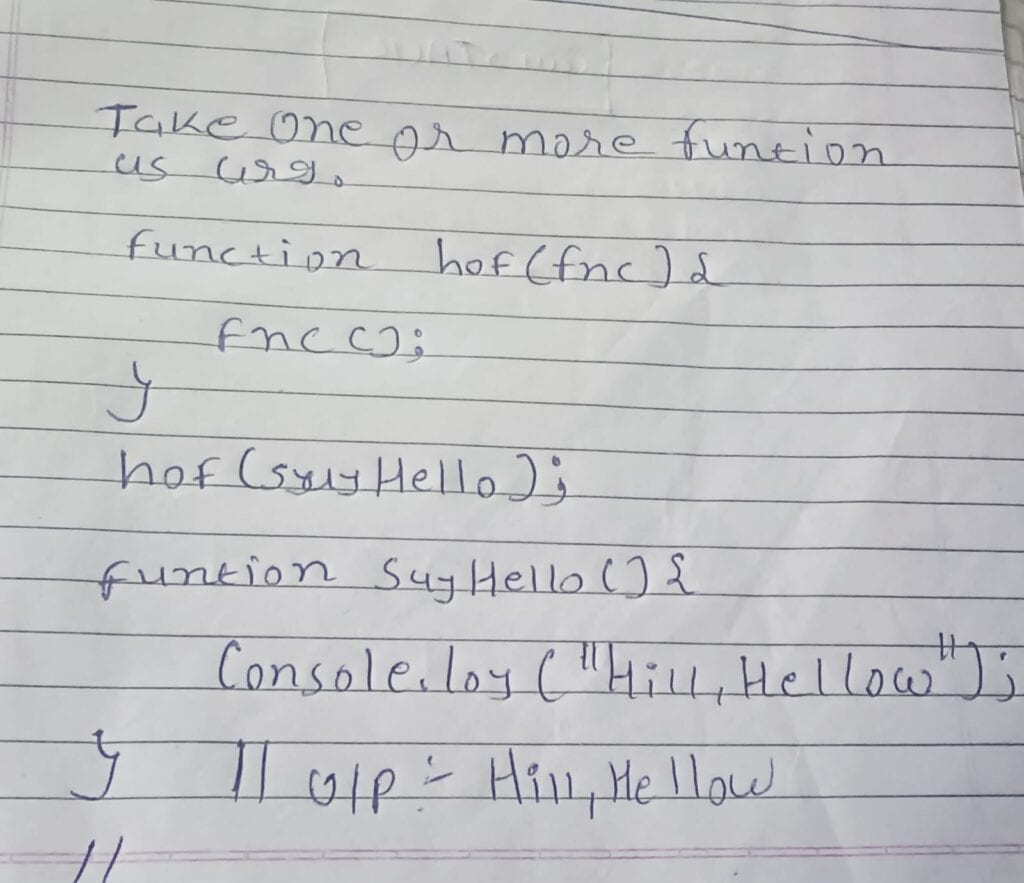 Take one or more funtion
as arg.
function hof(fnc){
fnc();
}
hof(sayHello);
funtion sayHello(){
Console.log("Hill, Hellow");
} // o/p :- Hill, Hellow
//